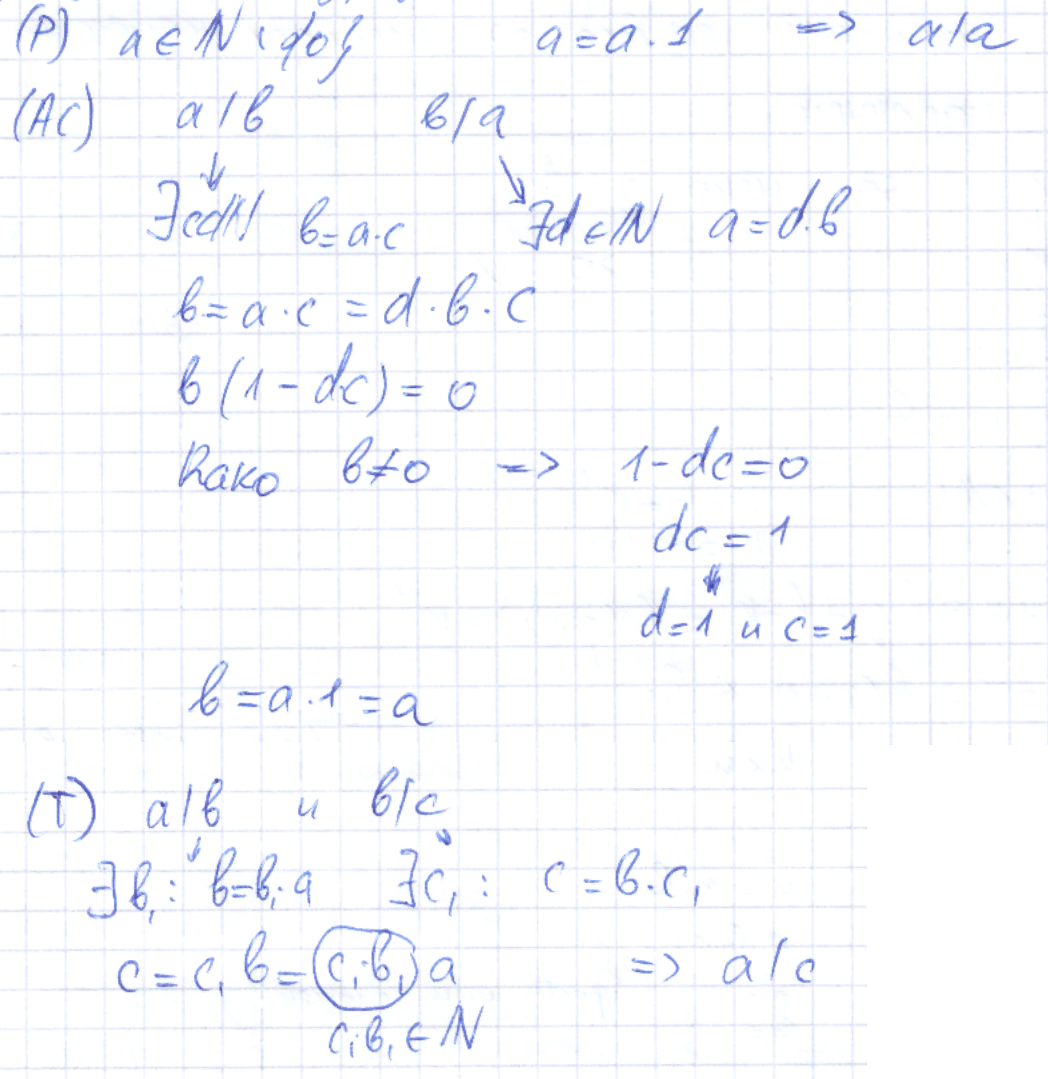 (P) a ∈ ℕ \ {0} a = a · 1 => a/a
(AC) a/b b/a
∃c∈ℕ b = a·c ∃d ∈ ℕ a = d·b
b = a · c = d · b · c
b (1 - dc) = 0
Како b ≠ 0 => 1 - dc = 0
dc = 1
d = 1 и c = 1
b = a · 1 = a
(T) a/b и b/c
∃b₁ : b = b₁·a ∃c₁ : c = b·c₁
c = c₁ b = (c₁·b₁) a => a/c
c₁·b₁ ∈ ℕ